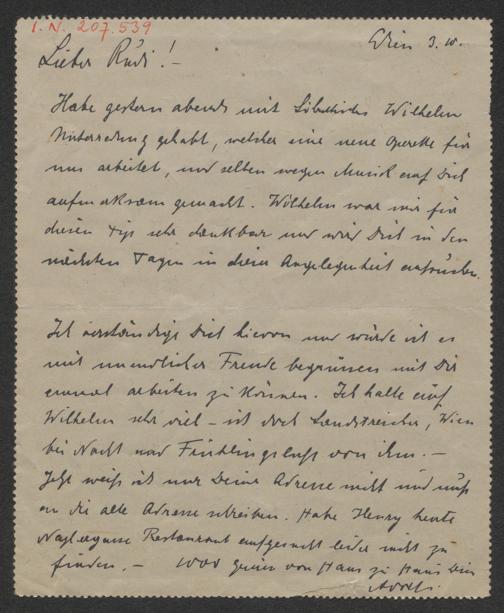 I. N. 207.539
Wien 3. IV.
Lieber Rudi! –
Habe gestern abends mit Wilhelm
Unterredung gehabt, welcher eine neue Operette für
uns arbeitet, und selben wegen Musik auf Dich
aufmerksam gemacht. Wilhelm war mir für
diesen Tip sehr dankbar und wird Dich in den
nächsten Tagen in dieser Angelegenheit aufsuchen.
Ich verständige Dich hievon und würde ich es
mit unendlicher Freude begrüssen mit Dir
einmal arbeiten zu können. Ich halte auf
Wilhelm sehr viel – ist doch Landstreicher, Wien
bei Nacht und Frühlingsluft von ihm. –
Jetzt weiß ich nur Deine Adresse nicht und muß
an die alte Adresse schreiben. Habe Henry heute
Restaurant aufgesucht leider nicht zu
finden. – 1000 von Haus zu Haus Dein